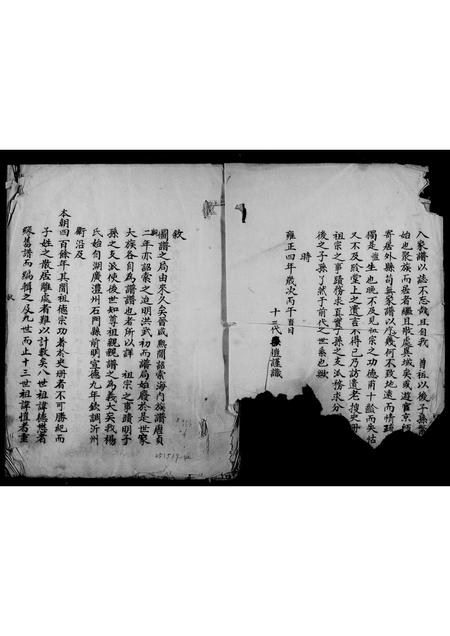 入家譜以誌不忘哉且自我　曾祖以後子孫
始也聚族而居者繼且散處異域矣或遊宦京師
寄居外縣苟無家譜以序幾何不致地遠而情疏
獨是生也晚不及見祖宗之功德甫十齡而失怙
又不及於堂上之遺言不得已乃訪遺老搜史冊
祖宗之事蹟務求真實子孫之支派務求分
後之子孫了然于前代之世系也歟
時
雍正四年歲次丙午　月　日
十三代　　植謹識
敘
圖譜之局由來久矣晉咸熙間詔索海內族譜唐貞
二年亦詔索之迨明洪武初而譜局始廢於是世家
大族各自為譜譜也者所以詳　祖宗之事蹟明子
孫之支派使後世知尊祖親親譜之為義大矣我楊
氏始自湖廣澧州石門縣前明宣德九年欽調沂州
衛沿及
本朝四百餘年其間祖德宗功著於史冊者不可勝紀而
子姓之散居離處者難以計數矣八世祖諱懋者
纂舊譜而編輯之及九世而止十三世祖諱植者重